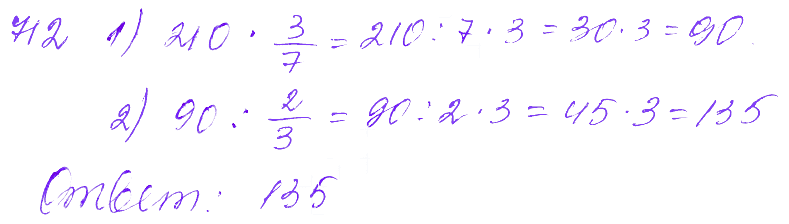 712 1) 210 · 3/7 = 210 : 7 · 3 = 30 · 3 = 90.
2) 90 : 2/3 = 90 : 2 · 3 = 45 · 3 = 135
Ответ: 135